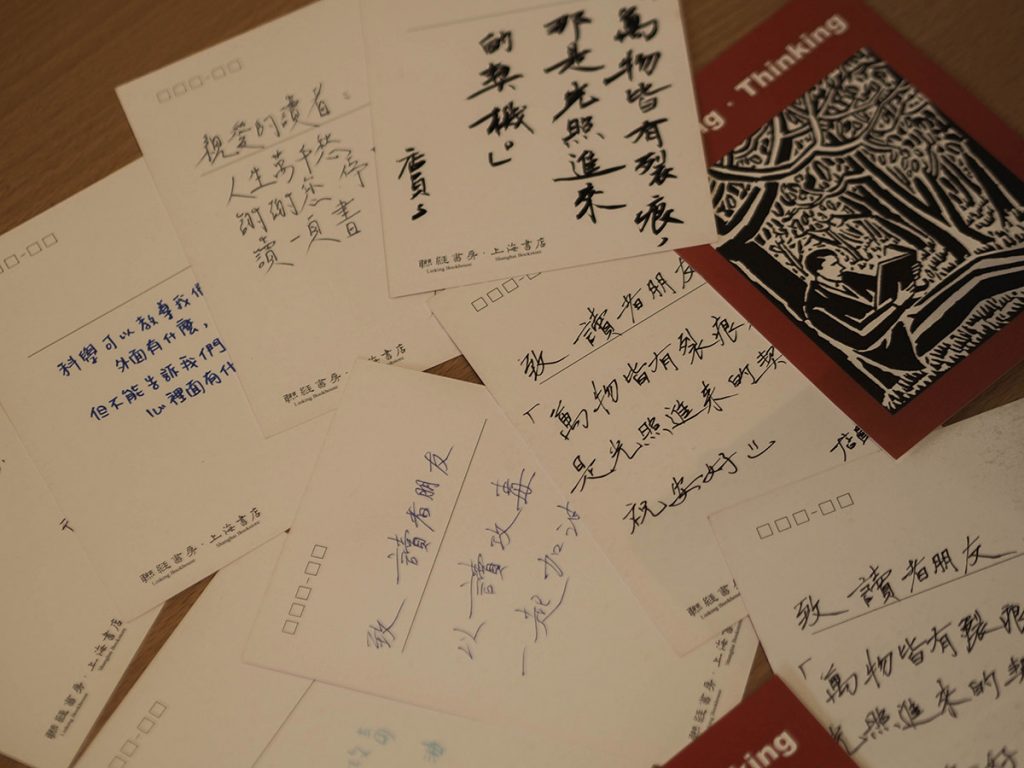 萬物皆有裂痕,
那是光照進來
的契機。」
店員
聯經書房・上海書店
Linking Bookhouse Shanghai Bookstore
g・Thinking
親愛的讀者。
人生萬千
謝謝您 停
讀一頁書
聯經書房・上海書店
Linking Bookhouse
科學可以教導我們
外面有什麼,
但不能告訴我們
心裡面有什
聯經書房・上海書店
Linking Bookhouse Shanghai Bookstore
致 讀者朋友
「萬物皆有裂痕
是光照進來的契
祝安好
店
聯經書房・上海書店
Linking Bookhouse
致 讀者朋友
以讀攻毒
一起加油
致 讀者朋友
「萬物皆有裂痕
光照進來的契
好
聯經書房・上海書店
Linking Bookhouse Shanghai Bookstore
king